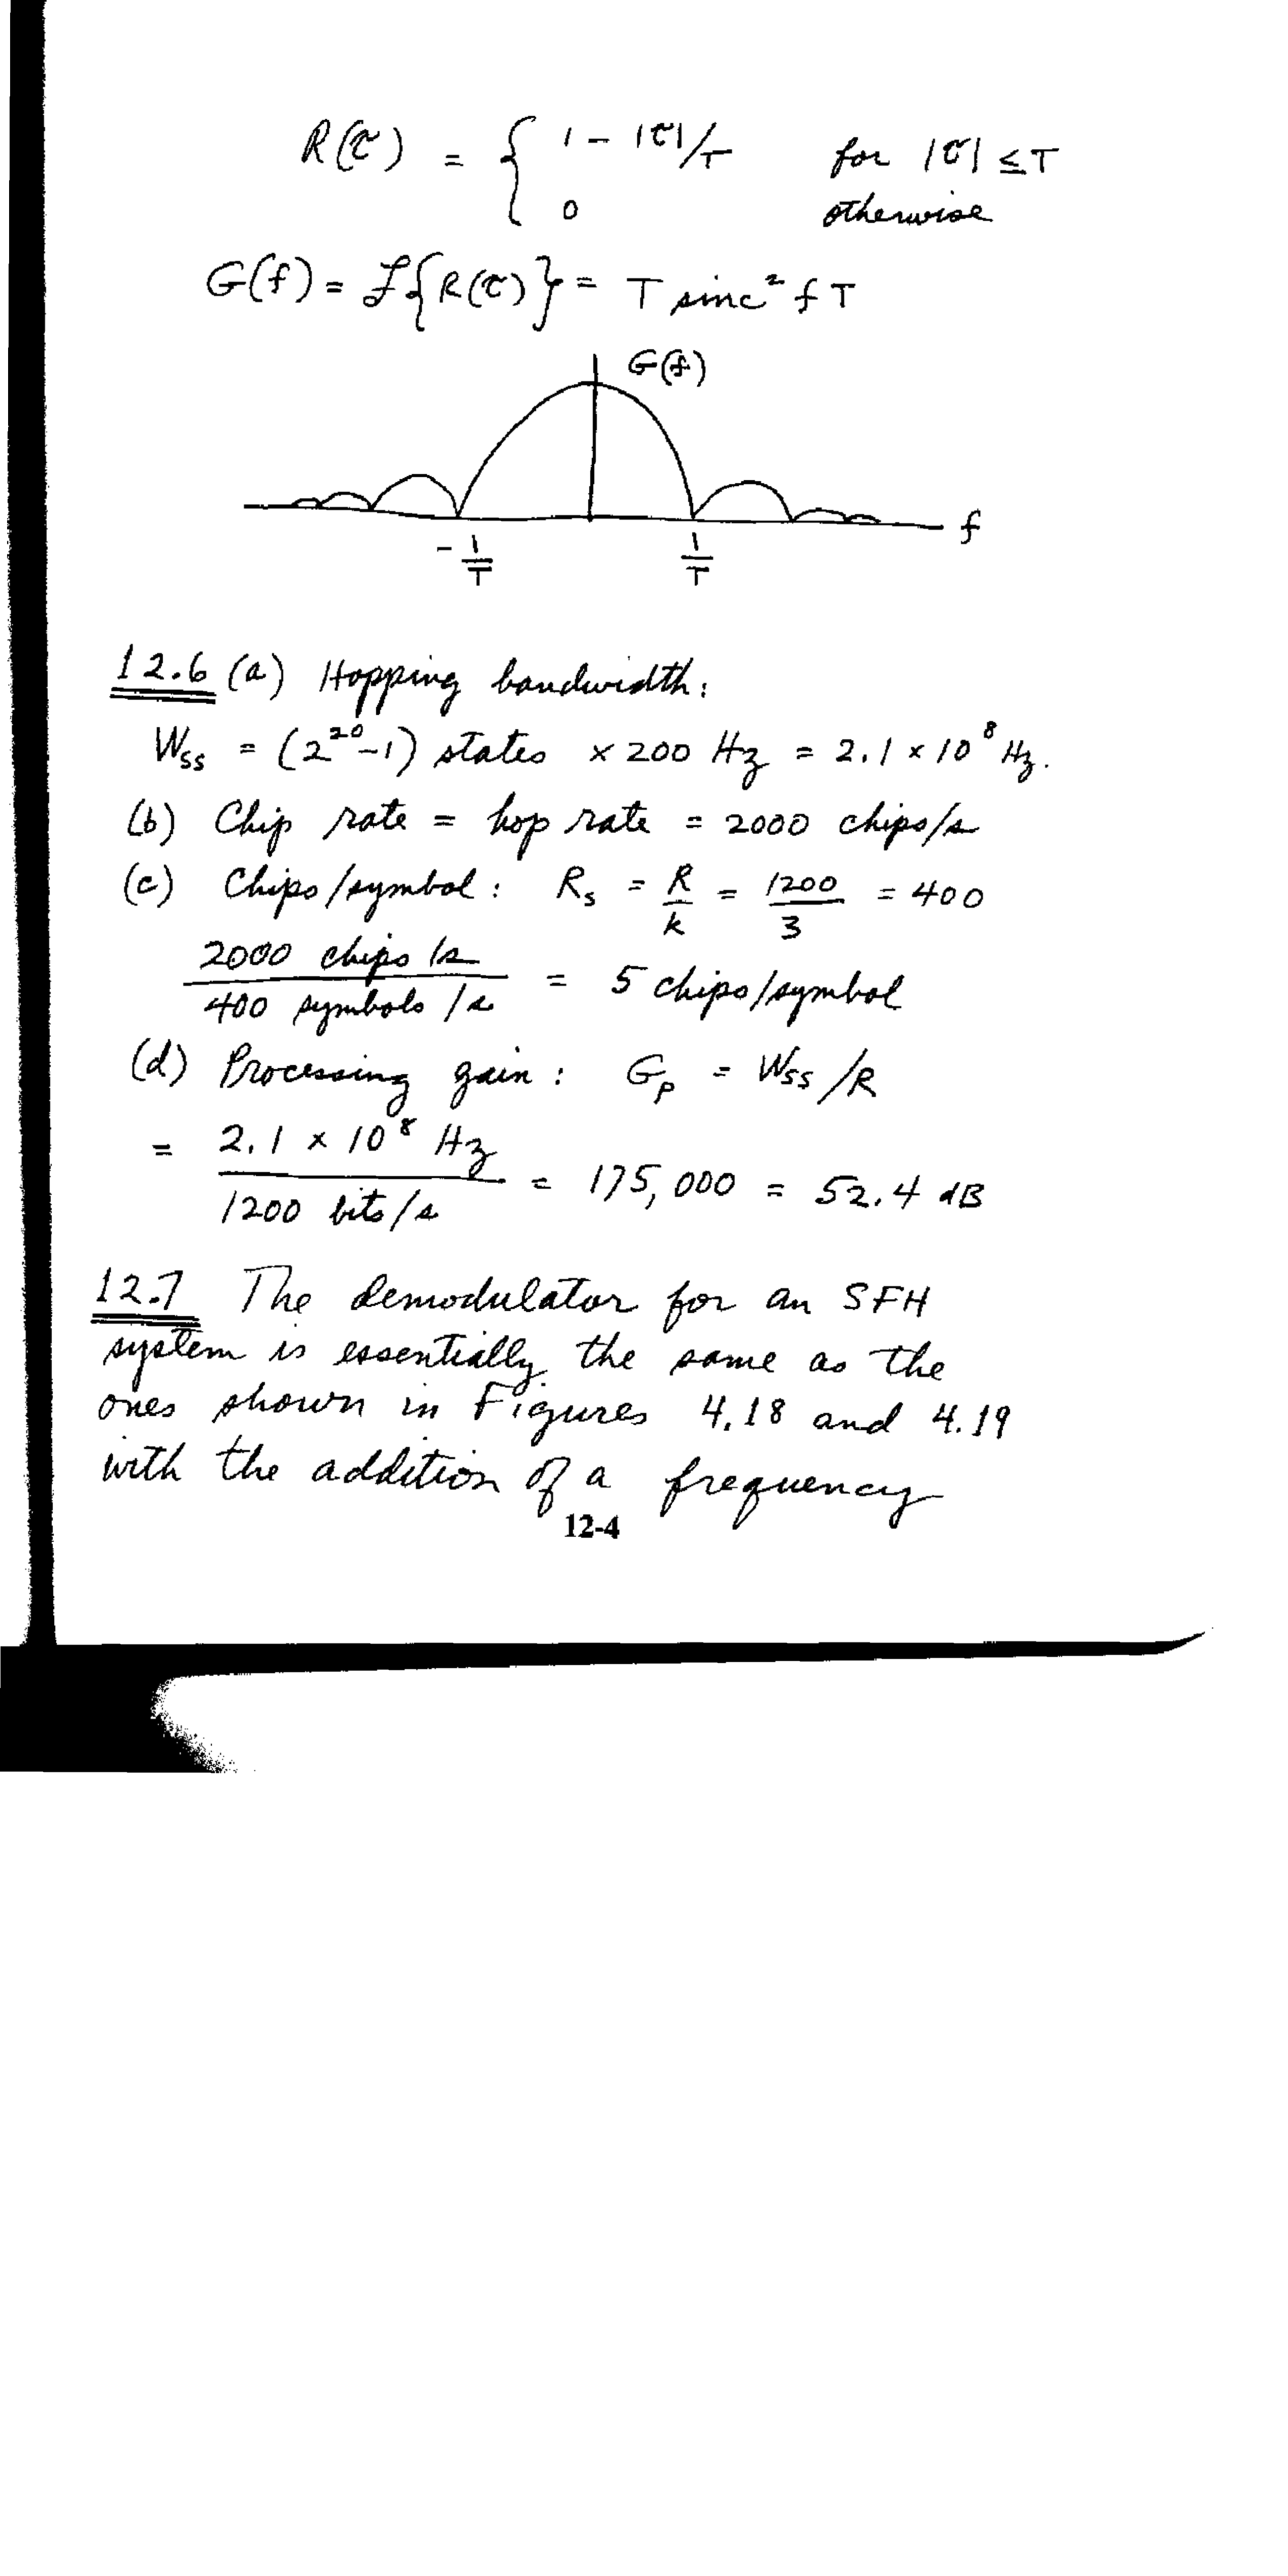 R(τ) = { 1 - |τ|/T for |τ| ≤ T
0 otherwise
G(f) = ℱ{R(τ)} = T sinc² f T
G(f)
f
- 1/T 1/T
12.6 (a) Hopping bandwidth:
Wss = (2²⁰-1) states × 200 Hz = 2.1 × 10⁸ Hz.
(b) Chip rate = hop rate = 2000 chips/s
(c) Chips/symbol: Rs = R/k = 1200/3 = 400
2000 chips/s / 400 symbols/s = 5 chips/symbol
(d) Processing gain: Gp = Wss/R
= 2.1 × 10⁸ Hz / 1200 bits/s = 175,000 = 52.4 dB
12.7 The demodulator for an SFH
system is essentially the same as the
ones shown in Figures 4.18 and 4.19
with the addition of a frequency
12-4